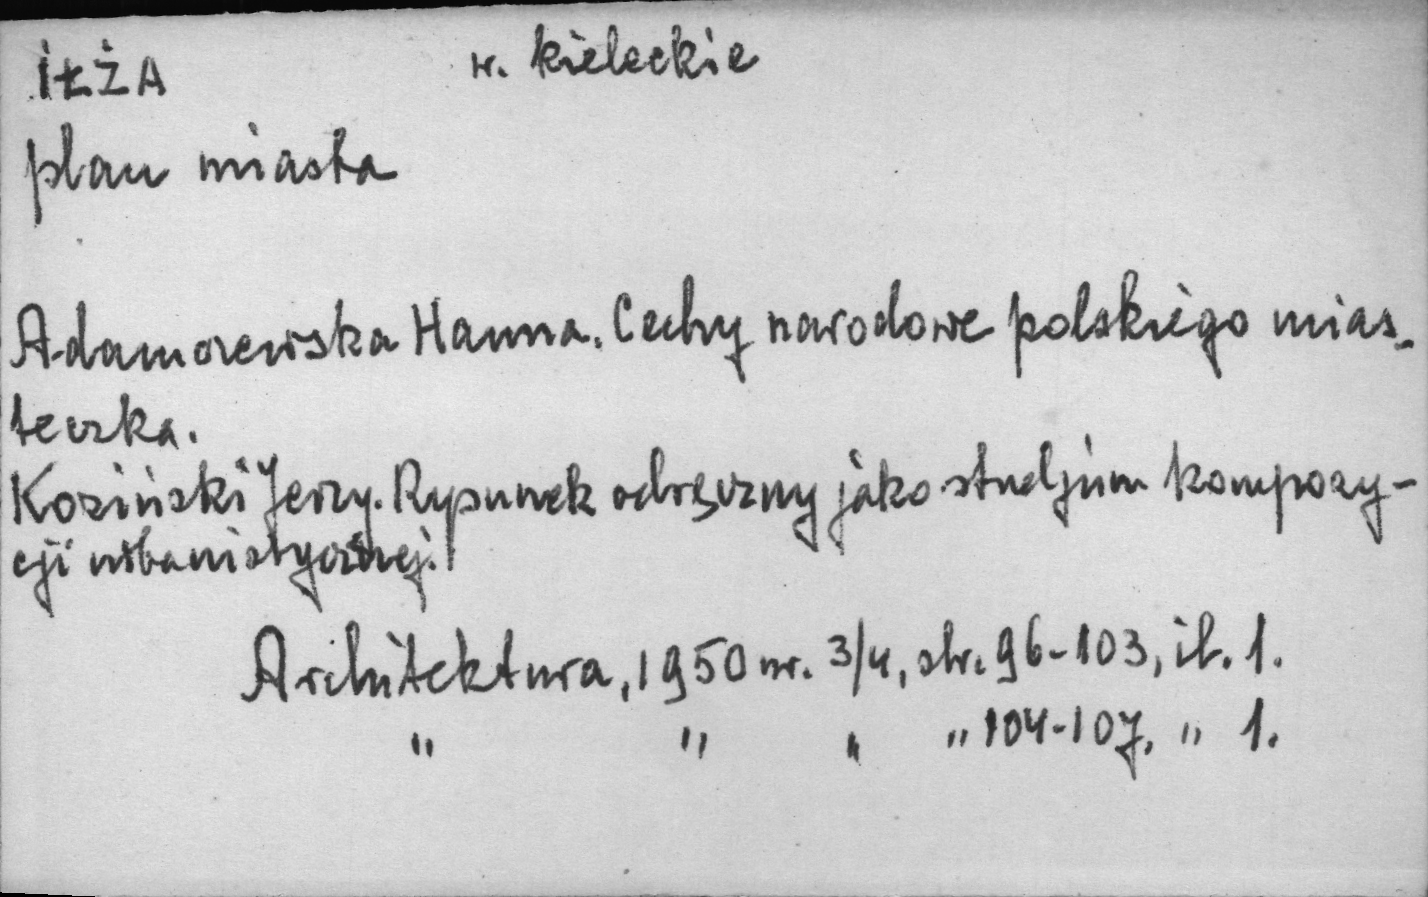 IŁŻA w. kieleckie
plan miasta
Adamczewska Hanna. Cechy narodowe polskiego mias-
teczka.
Koziński Jerzy. Rysunek odręczny jako studjum kompozy-
cji urbanistycznej.
Architektura, 1950 nr. 3/4, str. 96-103, il. 1.
" " " " 104-107, " 1.